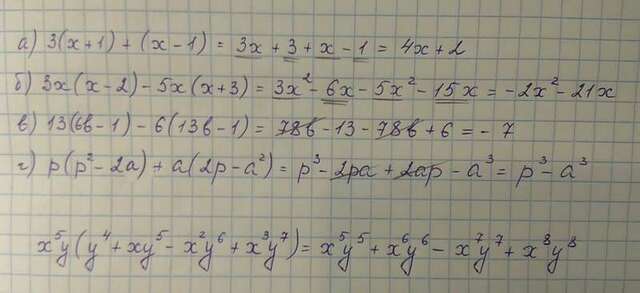 а) 3(x+1) + (x-1) = 3x + 3 + x - 1 = 4x + 2
б) 3x(x-2) - 5x(x+3) = 3x² - 6x - 5x² - 15x = -2x² - 21x
в) 13(6b-1) - 6(13b-1) = 78b - 13 - 78b + 6 = -7
г) p(p² - 2a) + a(2p - a²) = p³ - 2pa + 2ap - a³ = p³ - a³
x⁵y(y⁴ + xy⁵ - x²y⁶ + x³y⁷) = x⁵y⁵ + x⁶y⁶ - x⁷y⁷ + x⁸y⁸